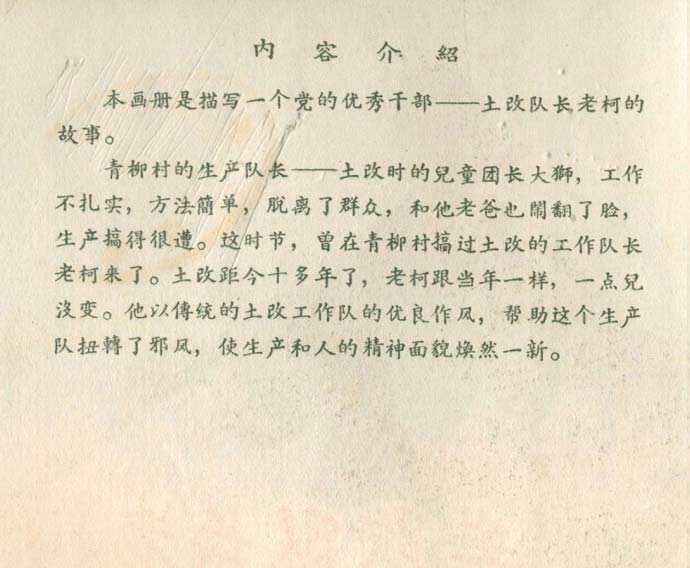 内容介紹
本画册是描写一个党的优秀干部——土改队长老柯的
故事。
青柳村的生产队长——土改时的兒童团长大獅，工作
不扎实，方法簡单，脫离了群众，和他老爸也鬧翻了脸，
生产搞得很遭。这时节，曾在青柳村搞过土改的工作队长
老柯来了。土改距今十多年了，老柯跟当年一样，一点兒
沒变。他以傳统的土改工作队的优良作风，帮助这个生产
队扭轉了邪风，使生产和人的精神面貌煥然一新。